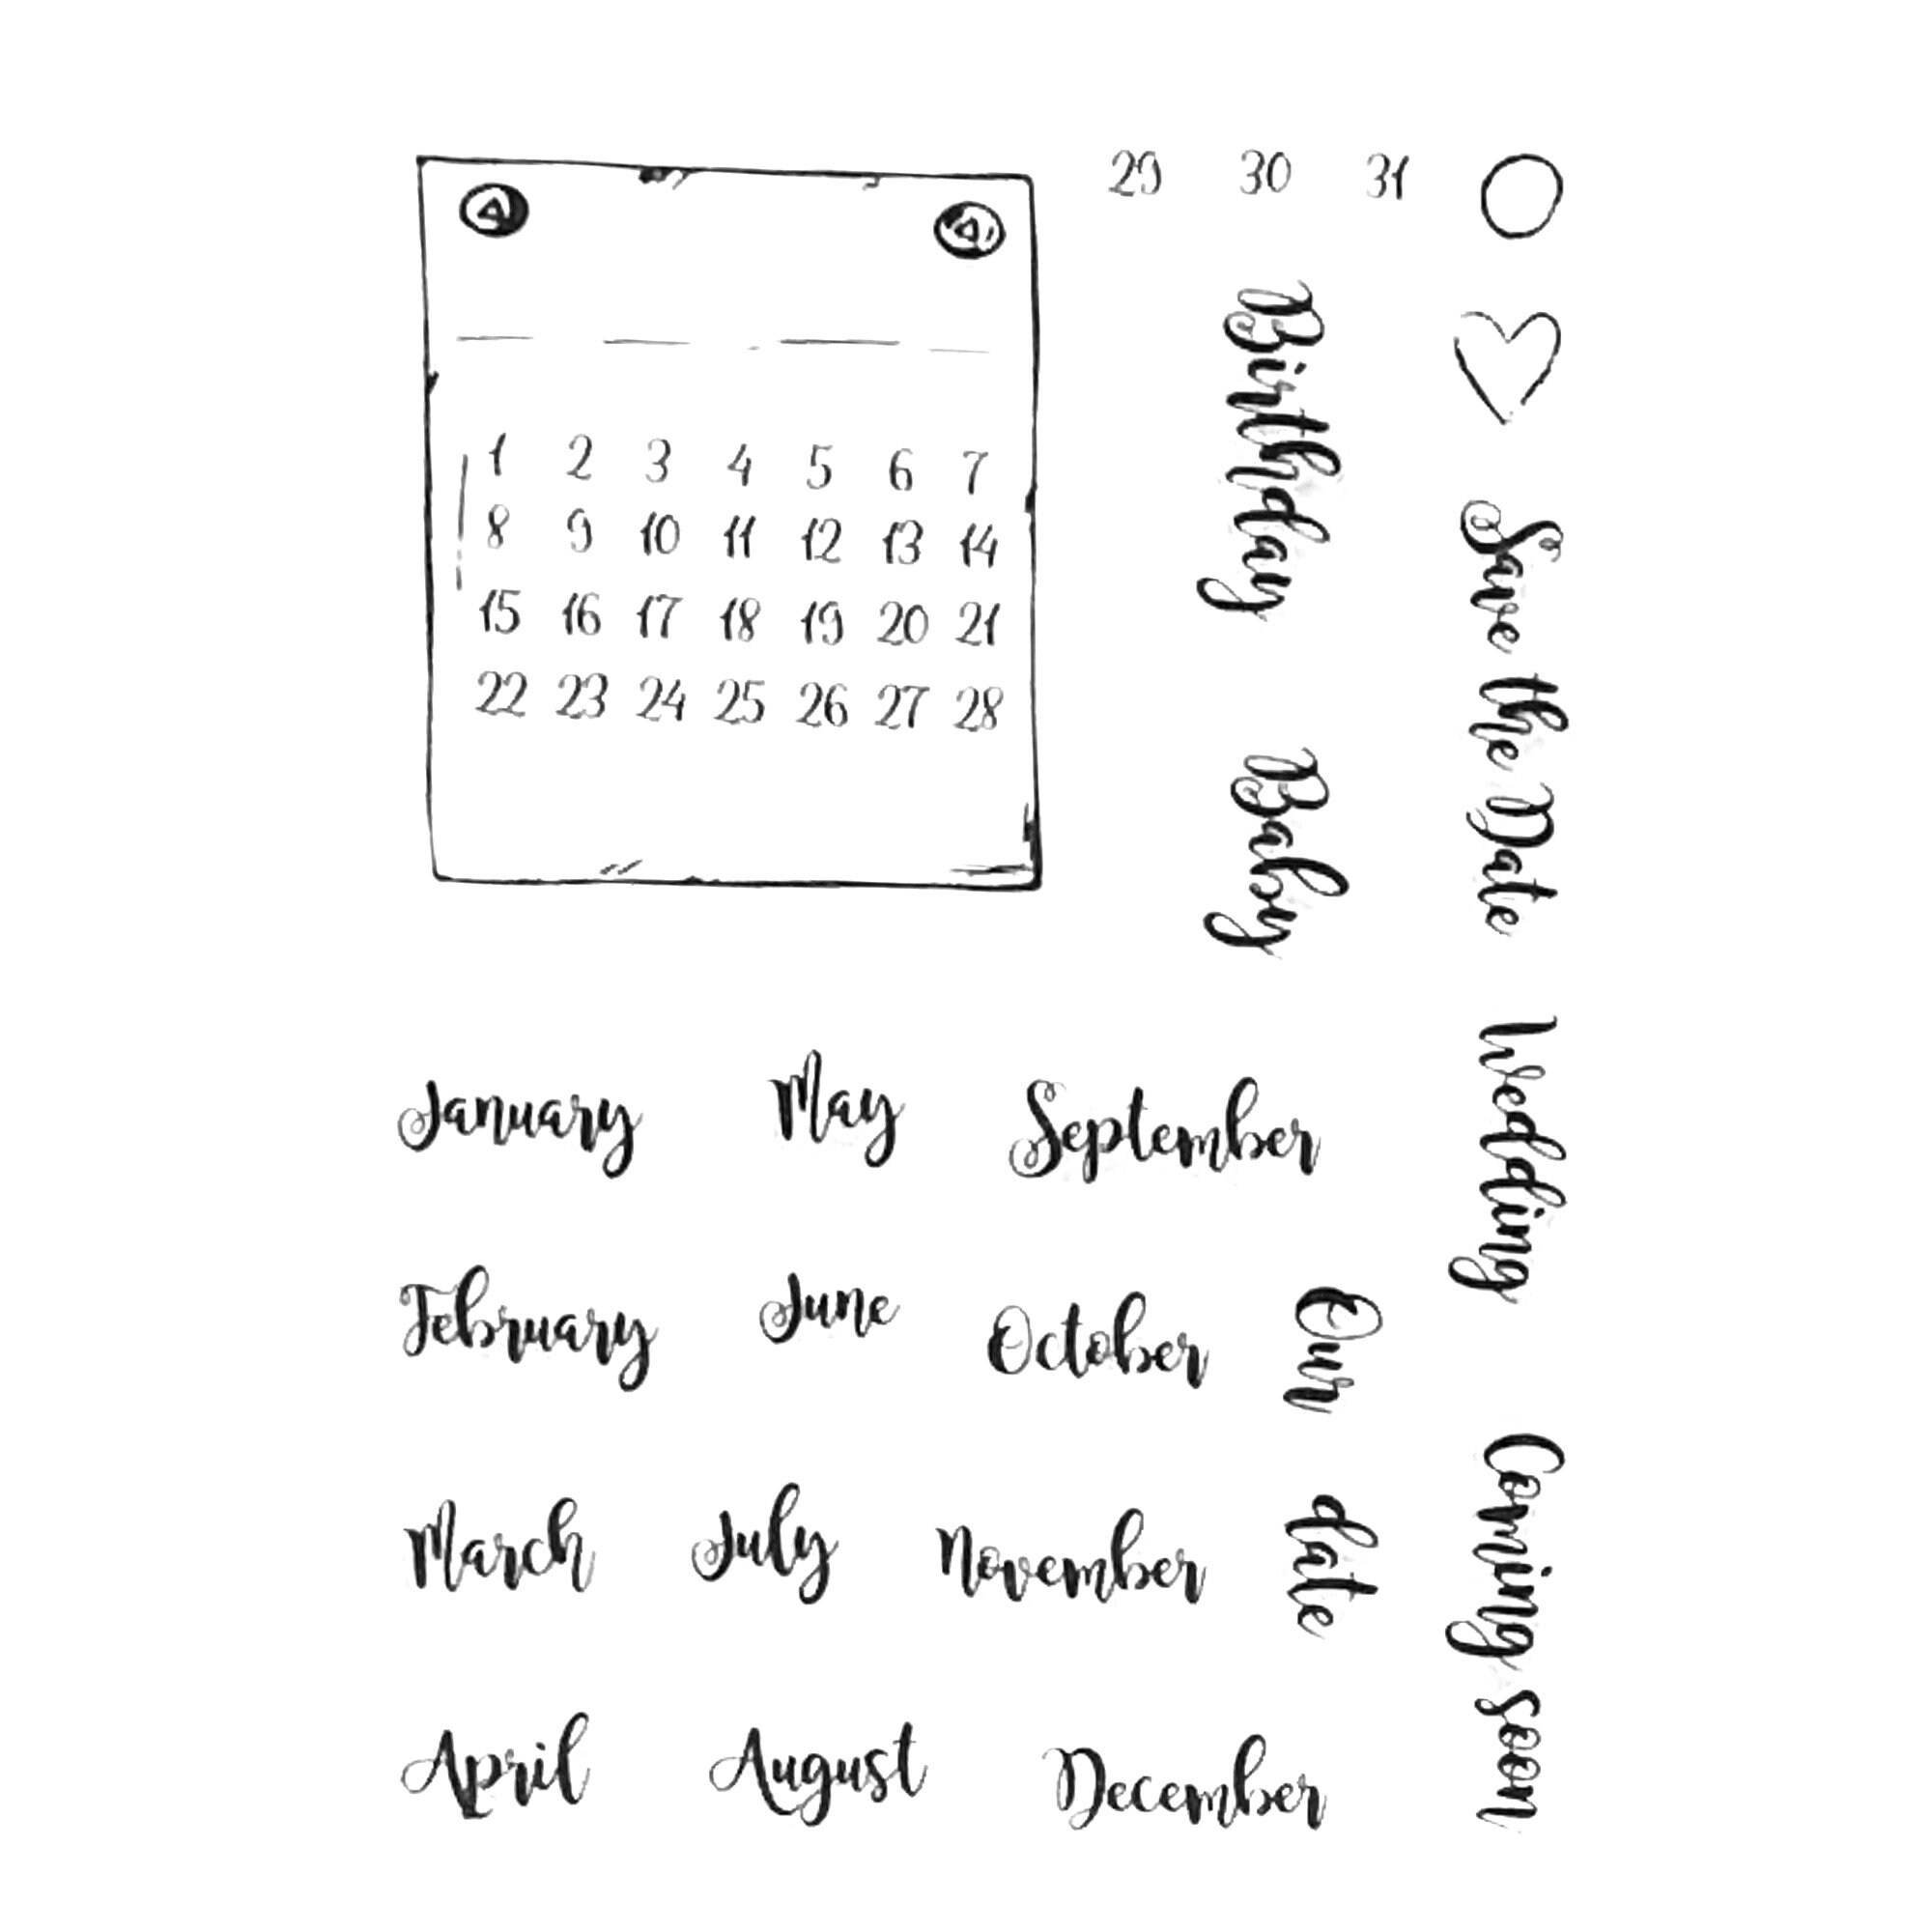 1 2 3 4 5 6 7
8 9 10 11 12 13 14
15 16 17 18 19 20 21
22 23 24 25 26 27 28
29 30 31
Birthday
Baby
Save the Date
Wedding
Our
date
Coming soon
January
May
September
February
June
October
March
July
November
April
August
December